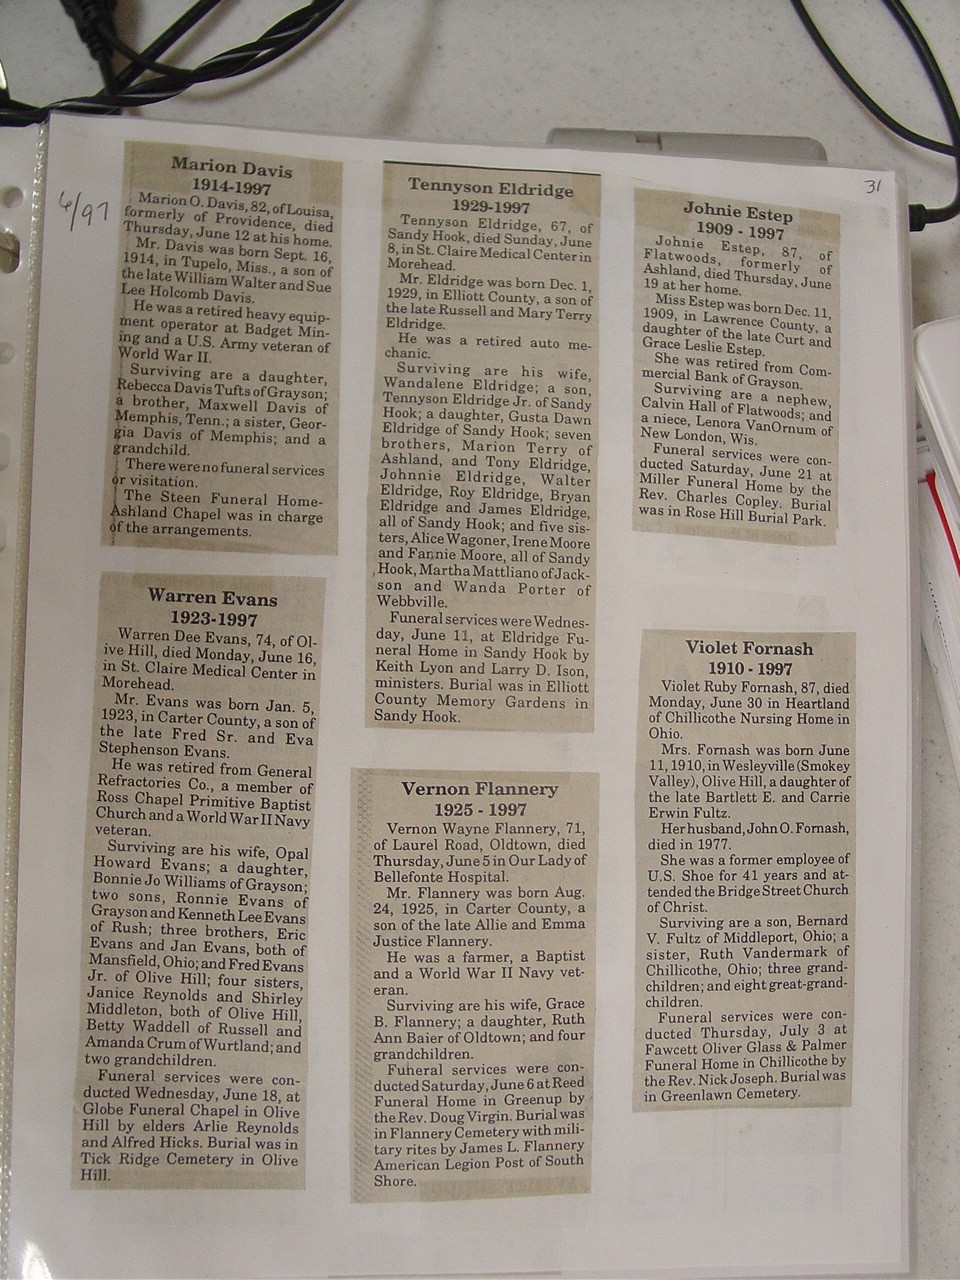 6/97
31
Marion Davis
1914-1997
Marion O. Davis, 82, of Louisa,
formerly of Providence, died
Thursday, June 12 at his home.
Mr. Davis was born Sept. 16,
1914, in Tupelo, Miss., a son of
the late William Walter and Sue
Lee Holcomb Davis.
He was a retired heavy equip-
ment operator at Badget Min-
ing and a U.S. Army veteran of
World War II.
Surviving are a daughter,
Rebecca Davis Tufts of Grayson;
a brother, Maxwell Davis of
Memphis, Tenn.; a sister, Geor-
gia Davis of Memphis; and a
grandchild.
There were no funeral services
or visitation.
The Steen Funeral Home-
Ashland Chapel was in charge
of the arrangements.
Warren Evans
1923-1997
Warren Dee Evans, 74, of Ol-
ive Hill, died Monday, June 16,
in St. Claire Medical Center in
Morehead.
Mr. Evans was born Jan. 5,
1923, in Carter County, a son of
the late Fred Sr. and Eva
Stephenson Evans.
He was retired from General
Refractories Co., a member of
Ross Chapel Primitive Baptist
Church and a World War II Navy
veteran.
Surviving are his wife, Opal
Howard Evans; a daughter,
Bonnie Jo Williams of Grayson;
two sons, Ronnie Evans of
Grayson and Kenneth Lee Evans
of Rush; three brothers, Eric
Evans and Jan Evans, both of
Mansfield, Ohio; and Fred Evans
Jr. of Olive Hill; four sisters,
Janice Reynolds and Shirley
Middleton, both of Olive Hill,
Betty Waddell of Russell and
Amanda Crum of Wurtland; and
two grandchildren.
Funeral services were con-
ducted Wednesday, June 18, at
Globe Funeral Chapel in Olive
Hill by elders Arlie Reynolds
and Alfred Hicks. Burial was in
Tick Ridge Cemetery in Olive
Hill.
Tennyson Eldridge
1929-1997
Tennyson Eldridge, 67, of
Sandy Hook, died Sunday, June
8, in St. Claire Medical Center in
Morehead.
Mr. Eldridge was born Dec. 1,
1929, in Elliott County, a son of
the late Russell and Mary Terry
Eldridge.
He was a retired auto me-
chanic.
Surviving are his wife,
Wandalene Eldridge; a son,
Tennyson Eldridge Jr. of Sandy
Hook; a daughter, Gusta Dawn
Eldridge of Sandy Hook; seven
brothers, Marion Terry of
Ashland, and Tony Eldridge,
Johnnie Eldridge, Walter
Eldridge, Roy Eldridge, Bryan
Eldridge and James Eldridge,
all of Sandy Hook; and five sis-
ters, Alice Wagoner, Irene Moore
and Fannie Moore, all of Sandy
Hook, Martha Mattliano of Jack-
son and Wanda Porter of
Webbville.
Funeral services were Wednes-
day, June 11, at Eldridge Fu-
neral Home in Sandy Hook by
Keith Lyon and Larry D. Ison,
ministers. Burial was in Elliott
County Memory Gardens in
Sandy Hook.
Vernon Flannery
1925 - 1997
Vernon Wayne Flannery, 71,
of Laurel Road, Oldtown, died
Thursday, June 5 in Our Lady of
Bellefonte Hospital.
Mr. Flannery was born Aug.
24, 1925, in Carter County, a
son of the late Allie and Emma
Justice Flannery.
He was a farmer, a Baptist
and a World War II Navy vet-
eran.
Surviving are his wife, Grace
B. Flannery; a daughter, Ruth
Ann Baier of Oldtown; and four
grandchildren.
Funeral services were con-
ducted Saturday, June 6 at Reed
Funeral Home in Greenup by
the Rev. Doug Virgin. Burial was
in Flannery Cemetery with mili-
tary rites by James L. Flannery
American Legion Post of South
Shore.
Johnie Estep
1909 - 1997
Johnie Estep, 87, of
Flatwoods, formerly of
Ashland, died Thursday, June
19 at her home.
Miss Estep was born Dec. 11,
1909, in Lawrence County, a
daughter of the late Curt and
Grace Leslie Estep.
She was retired from Com-
mercial Bank of Grayson.
Surviving are a nephew,
Calvin Hall of Flatwoods; and
a niece, Lenora VanOrnum of
New London, Wis.
Funeral services were con-
ducted Saturday, June 21 at
Miller Funeral Home by the
Rev. Charles Copley. Burial
was in Rose Hill Burial Park.
Violet Fornash
1910 - 1997
Violet Ruby Fornash, 87, died
Monday, June 30 in Heartland
of Chillicothe Nursing Home in
Ohio.
Mrs. Fornash was born June
11, 1910, in Wesleyville (Smokey
Valley), Olive Hill, a daughter of
the late Bartlett E. and Carrie
Erwin Fultz.
Her husband, John O. Fornash,
died in 1977.
She was a former employee of
U.S. Shoe for 41 years and at-
tended the Bridge Street Church
of Christ.
Surviving are a son, Bernard
V. Fultz of Middleport, Ohio; a
sister, Ruth Vandermark of
Chillicothe, Ohio; three grand-
children; and eight great-grand-
children.
Funeral services were con-
ducted Thursday, July 3 at
Fawcett Oliver Glass & Palmer
Funeral Home in Chillicothe by
the Rev. Nick Joseph. Burial was
in Greenlawn Cemetery.